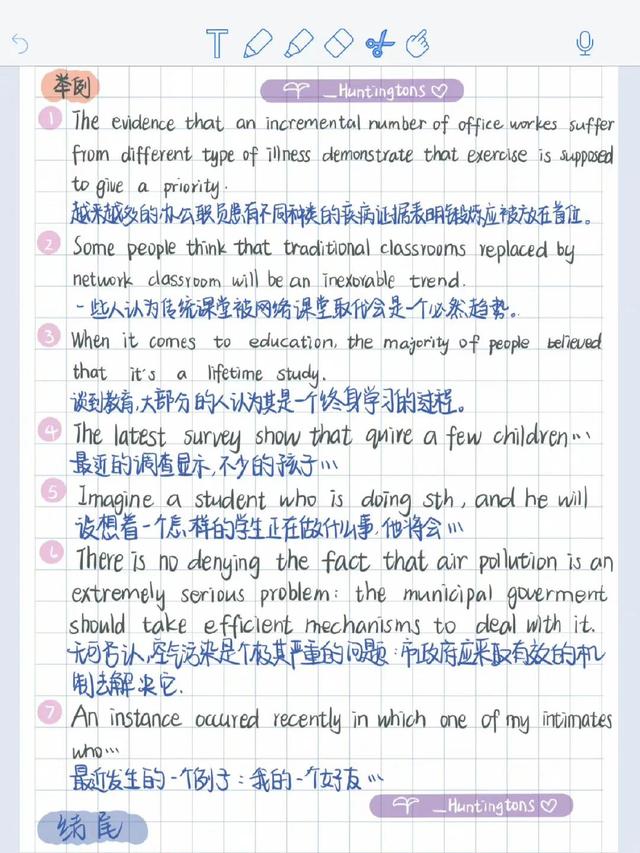 T
举例
_Huntingtons
1 The evidence that an incremental number of office workes suffer
from different type of illness demonstrate that exercise is supposed
to give a priority.
越来越多的办公职员患有不同种类的疾病证据表明锻炼应被放在首位。
2 Some people think that traditional classrooms replaced by
network classroom will be an inexorable trend.
一些人认为传统课堂被网络课堂取代会是一个必然趋势。
3 When it comes to education, the majority of people believed
that it's a lifetime study.
谈到教育,大部分的人认为其是一个终身学习的过程。
4 The latest survey show that quire a few children…
最近的调查显示,不少的孩子…
5 Imagine a student who is doing sth, and he will
设想着一个怎样的学生正在做什么事,他将会…
6 There is no denying the fact that air pollution is an
extremely serious problem: the municipal goverment
should take efficient mechanisms to deal with it.
无可否认,空气污染是个极其严重的问题:市政府应采取有效的机
制去解决它.
7 An instance occured recently in which one of my intimates
who…
最近发生的一个例子:我的一个好友…
_Huntingtons
结尾